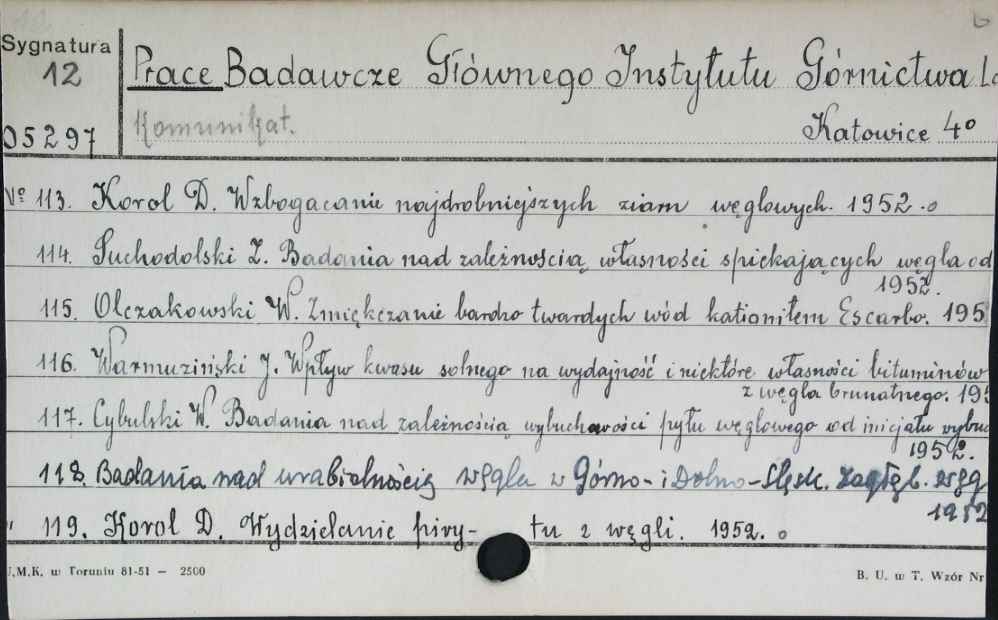 Sygnatura
12
05297
Prace Badawcze Głównego Instytutu Górnictwa
Komunikat.
Katowice 4°
Nº 113. Korol D. Wzbogacanie najdrobniejszych ziarn węglowych. 1952.
114. Suchodolski Z. Badania nad zależnością własności spiekających węgla od
1952.
115. Olczakowski W. Zmiękczanie bardzo twardych wód kationitem Escarbo. 195
116. Warmuziński J. Wpływ kwasu solnego na wydajność i niektóre własności bituminów
z węgla brunatnego. 195
117. Cybulski W. Badania nad zależnością wybuchowości pyłu węglowego od inicjału wybuc
1952.
118. Badania nad urabialnością węgla w Górno- i Dolno-Śląsk. Zagłęb. węg
1952
" 119. Korol D. Wydzielanie piry- tu z węgli. 1952.
U.M.K. w Toruniu 81-51 — 2500
B. U. w T. Wzór Nr